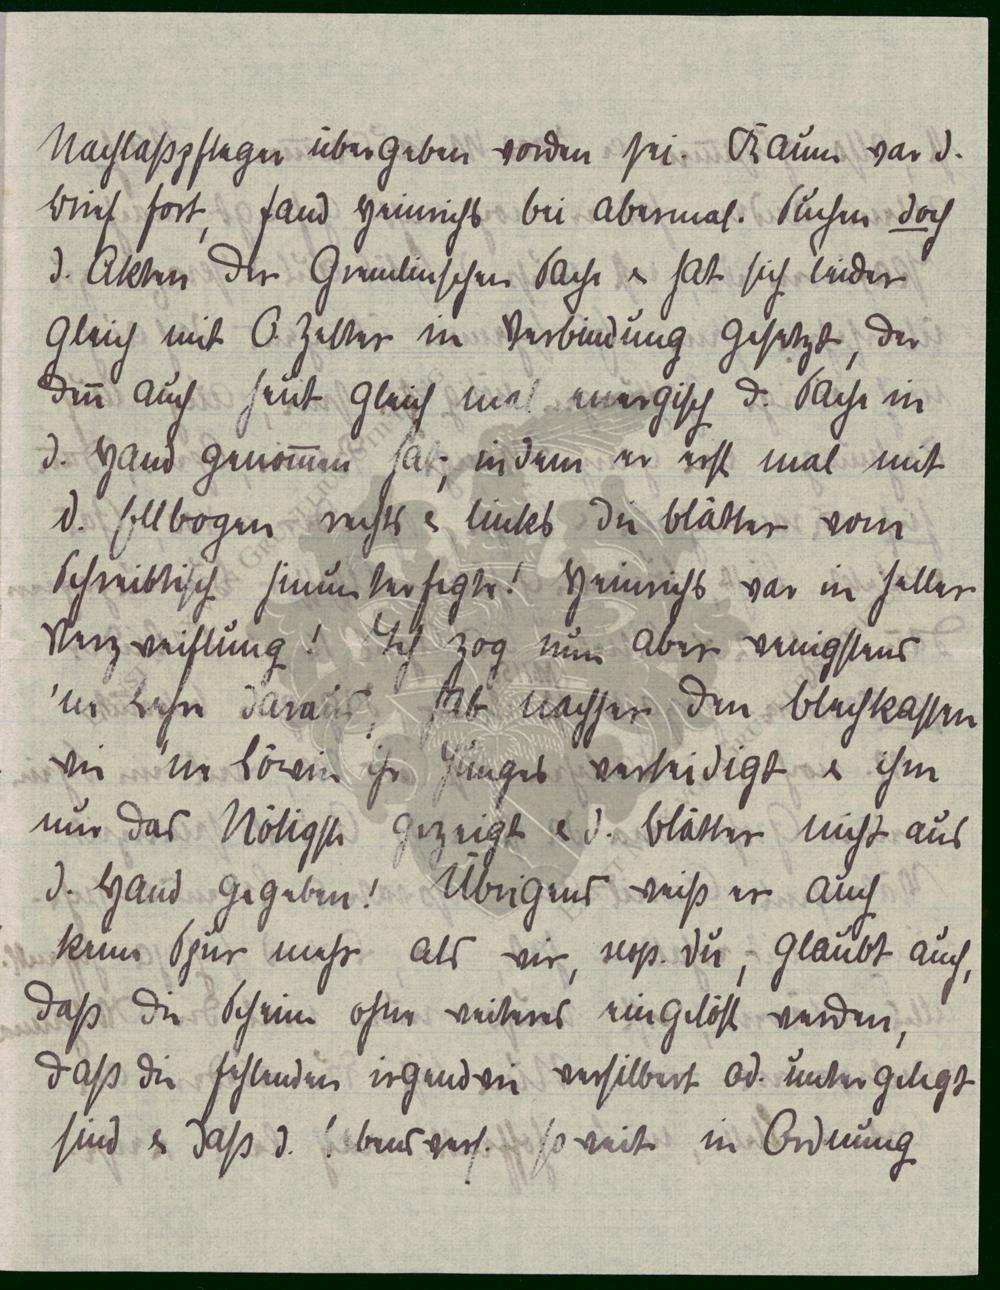 Nachlaßpfleger übergeben worden sei. Kaum war d.
Brief fort, fand Heinrichs bei abermal. Suchen doch
d. Akten der Gremlinschen Sache & hat sich leider
gleich mit O. Zelter in Verbindung gesetzt, der
deñ auch heut gleich mal energisch d. Sache in
d. Hand genom̄en hat, indem er erst mal mit
d. Ellbogen rechts & links die Blätter vom
Schreibtisch hinunterfegte! Heinrichs war in heller
Verzweiflung! Ich zog nun aber wenigstens
'ne Lehre daraus, hab nachher den Blechkasten
wie 'ne Löwin ihr Junges verteidigt & ihm
nur das Nötigste gezeigt & d. Blätter nicht aus
d. Hand gegeben! Übrigens weiß er auch
keine Spur mehr als wir, resp. du, glaubt auch,
daß die Scheine ohne weiteres eingelöst werden,
daß die fehlenden irgendwie versilbert od. untergelegt
sind & daß d. Lebensvers. so weit in Ordnung